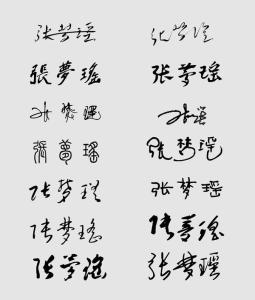 张梦瑶 张梦瑶
張夢瑤 張夢瑤
张梦瑶 张瑶
張夢瑤 張梦瑶
张梦瑶 张梦瑶
张梦瑶 张夢瑶
张梦瑶 张梦瑶